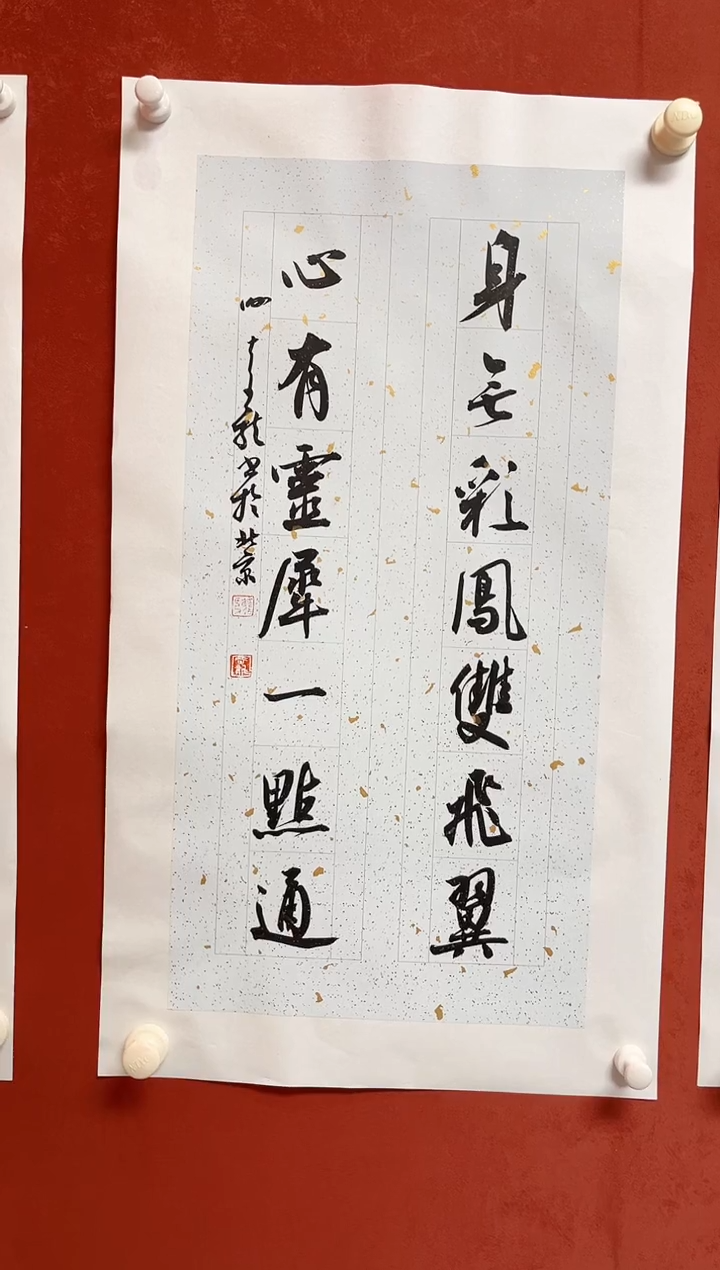 身無彩鳳雙飛翼
心有靈犀一點通
書於北京